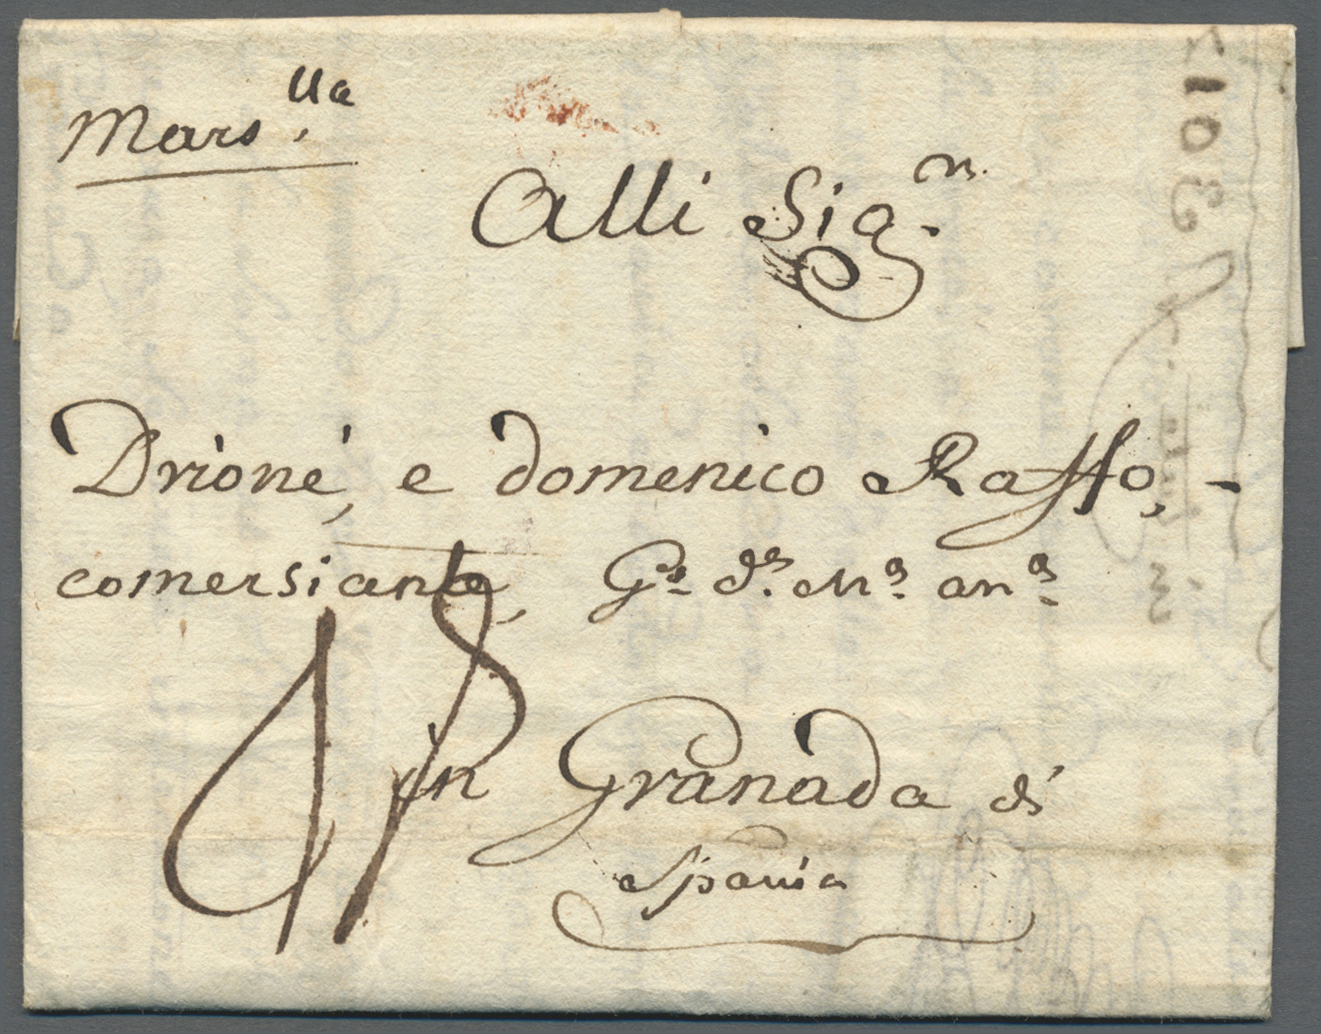 Mars.lla
Alli Sig.n.
Drioné, e domenico Raffo, -
comersiante, Gs. dn. Ma. ana.
in Granada di
Spania